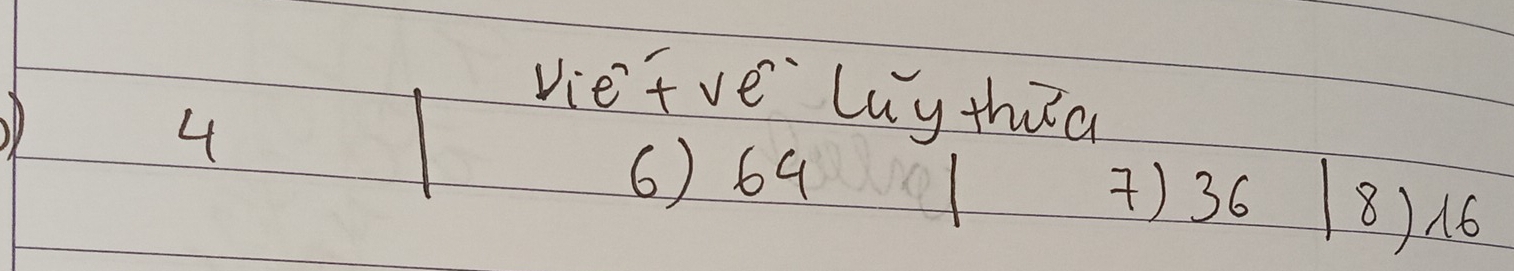 Viết về lũy thừa
) 4 | 6) 64 | 7) 36 | 8) 16